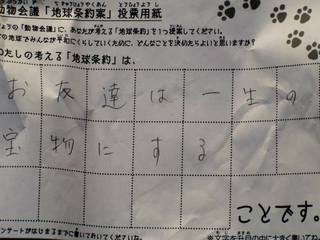 動物会議「地球条約案」投票用紙
「動物会議」に、あなたが考える「地球条約」を1つ提案してください。
地球でみんなが平和にくらしていくために、どんなことを決めたらよいと思いますか?
わたしの考える「地球条約」は、
お友達は一生の
宝物にする
ことです。